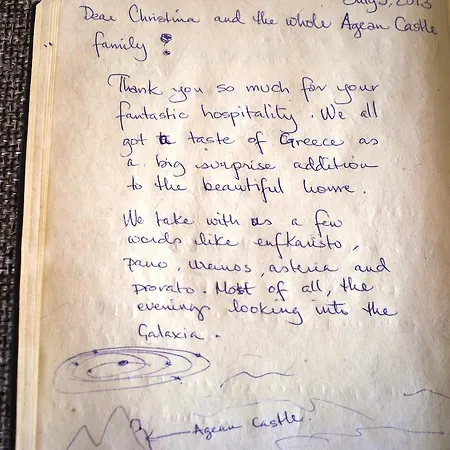 July 5, 2013
Dear Christina and the whole Agean Castle
family !
Thank you so much for your
fantastic hospitality. We all
got a taste of Greece as
a big surprise addition
to the beautiful home.
We take with us a few
words like enfkaristo,
pano, uranos, asteria and
provato. Most of all, the
evenings looking into the
Galaxia.
Agean Castle.